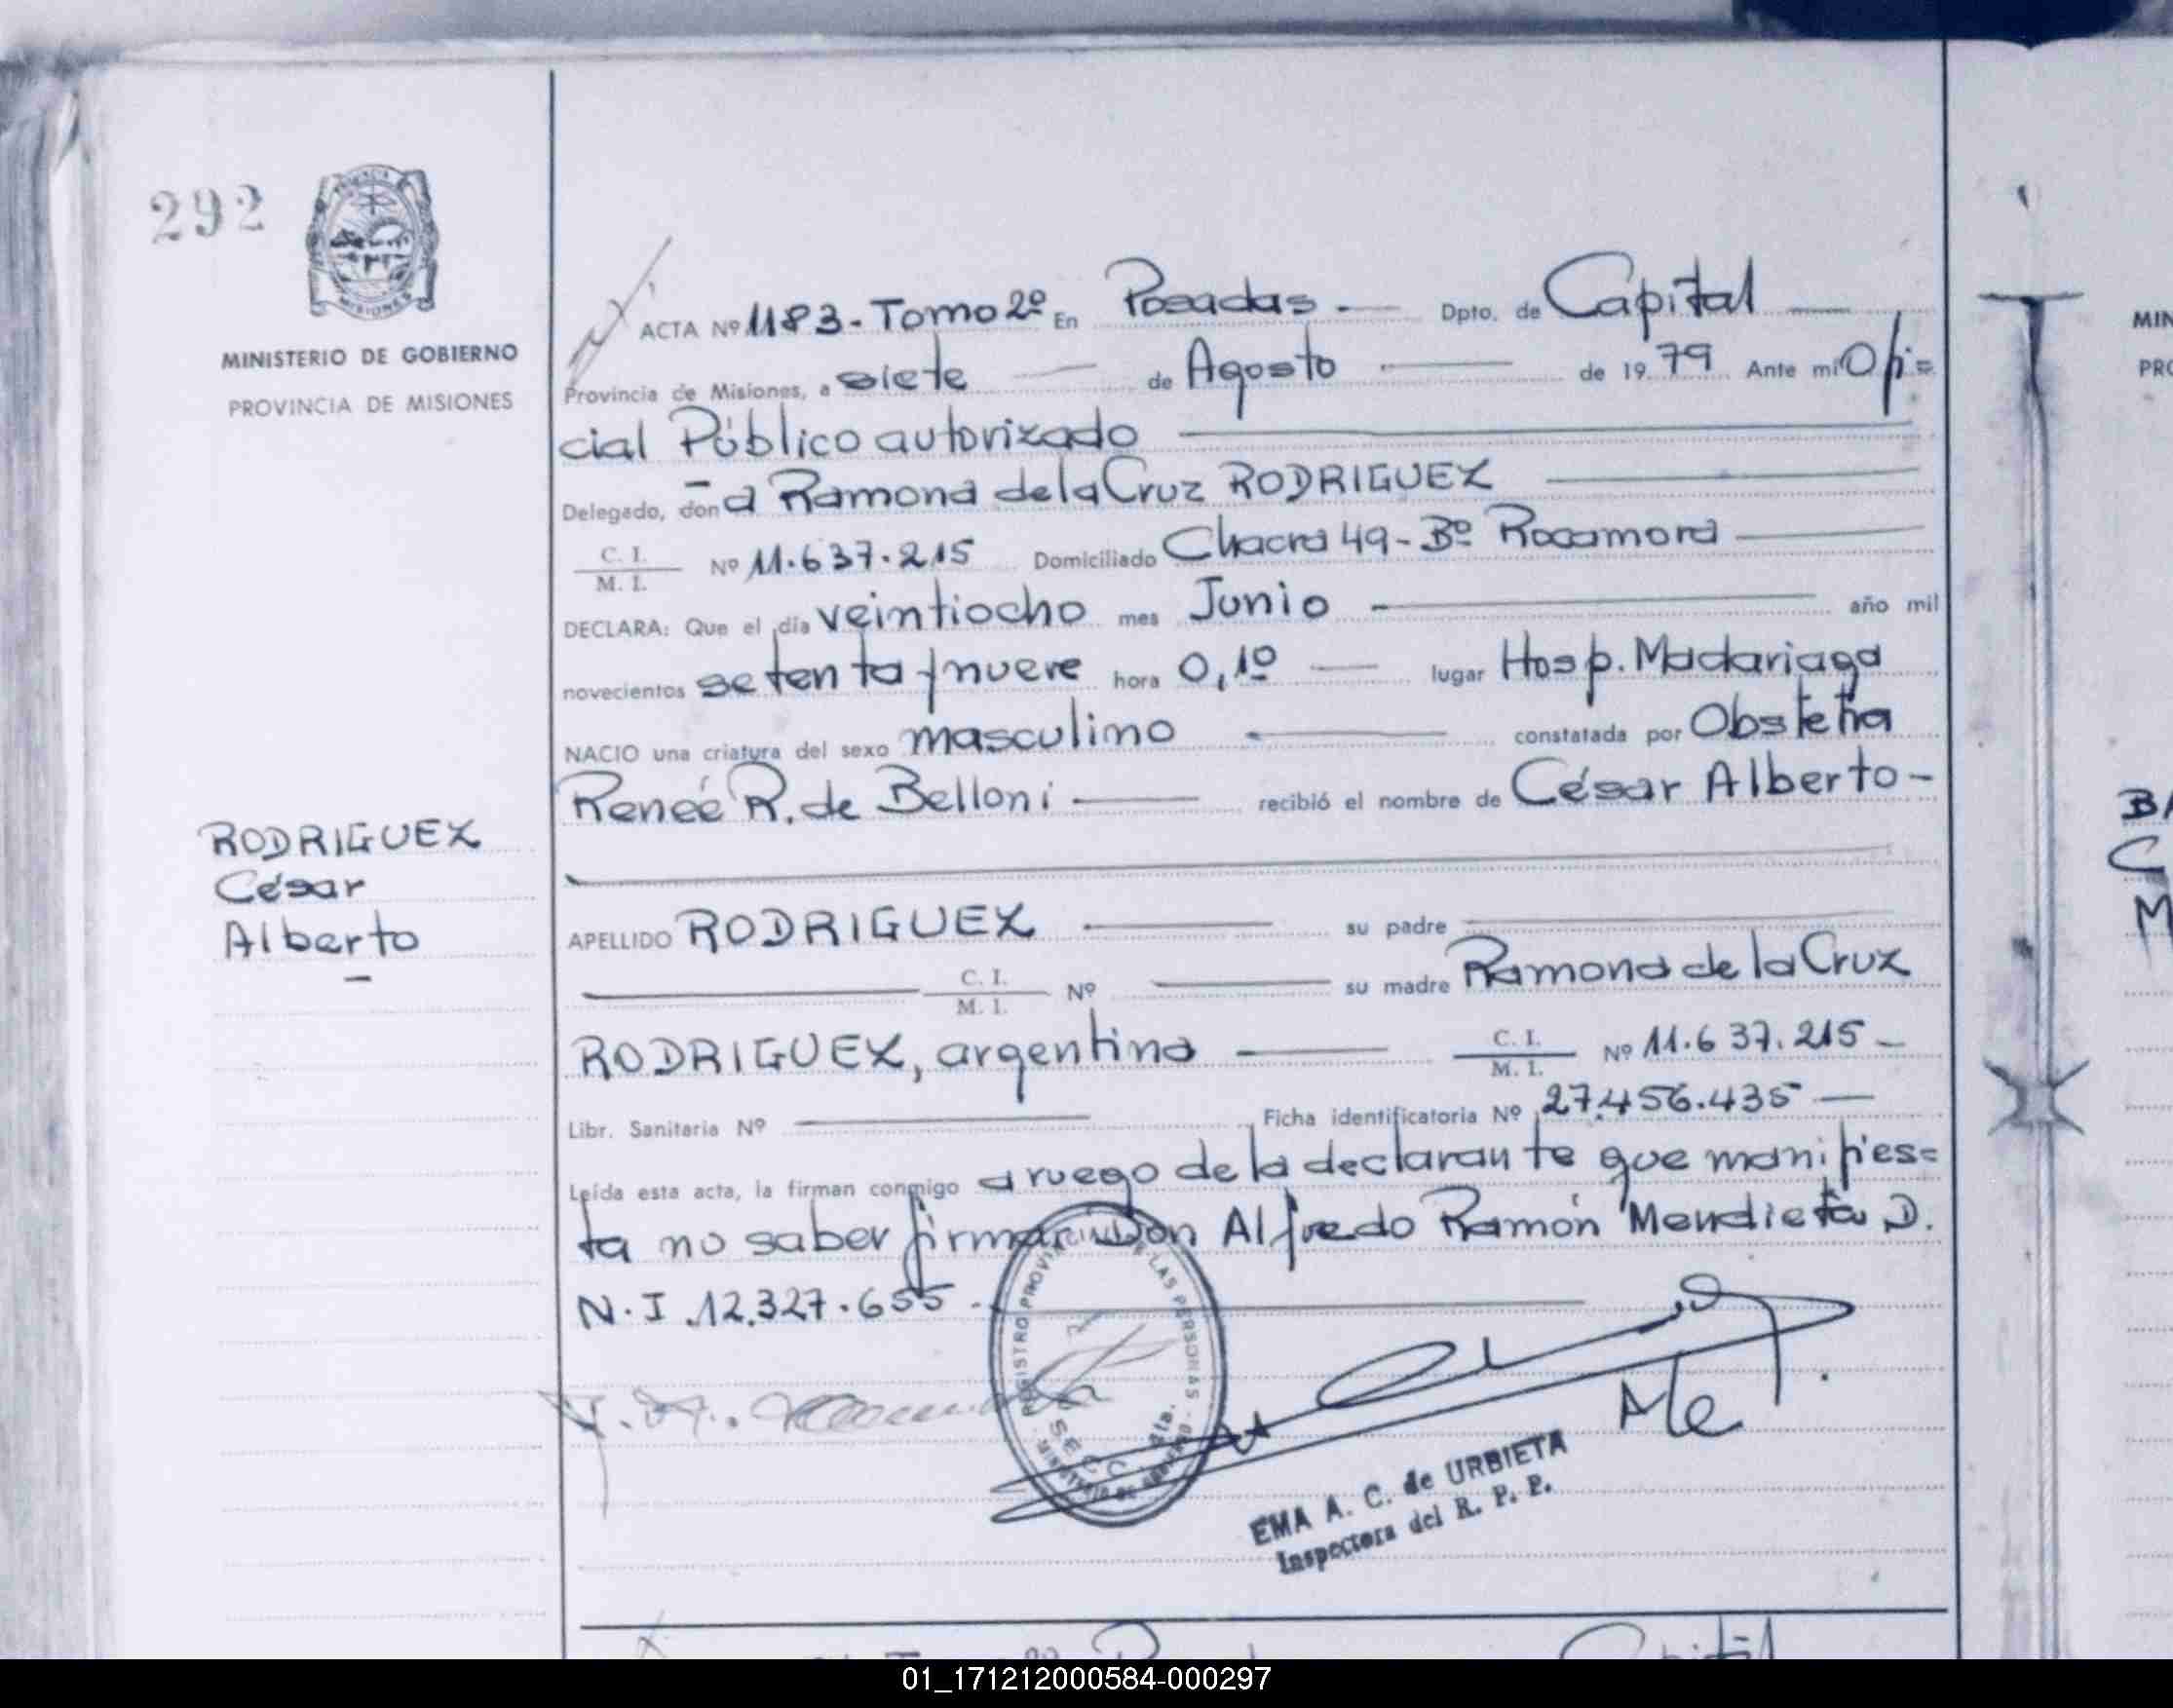 292
PROVINCIA
MISIONES
MINISTERIO DE GOBIERNO
PROVINCIA DE MISIONES
RODRIGUEZ
César
Alberto
ACTA Nº 1183 - Tomo 2º En Posadas - Dpto. de Capital
Provincia de Misiones, a siete de Agosto de 1979 Ante mí Ofi=
cial Público autorizado
Delegado, dona Ramona de la Cruz RODRIGUEZ
C. I.
M. I.
Nº 11.637.215 Domiciliado Chacra 49 - Bº Rocamora
DECLARA: Que el día veintiocho mes Junio año mil
novecientos setenta y nueve hora 0,10 lugar Hosp. Madariaga
NACIO una criatura del sexo masculino constatada por Obstetra
Reneé R. de Belloni recibió el nombre de César Alberto -
APELLIDO RODRIGUEZ su padre
C. I.
M. I.
Nº su madre Ramona de la Cruz
RODRIGUEZ, argentina C. I.
M. I.
Nº 11.637.215 -
Libr. Sanitaria Nº Ficha identificatoria Nº 27.456.435 -
Leída esta acta, la firman conmigo a ruego de la declarante que manifies=
ta no saber firmar Don Alfredo Ramón Mendieta D.
N.I. 12.327.655.-
REGISTRO PROVINCIAL DE LAS PERSONAS
SECC. 4ta.
MINISTERIO DE GOBIERNO
EMA A. C. de URBIETA
Inspectora del R. P. P.
MIN
PRO
BA
C
M
01_171212000584-000297